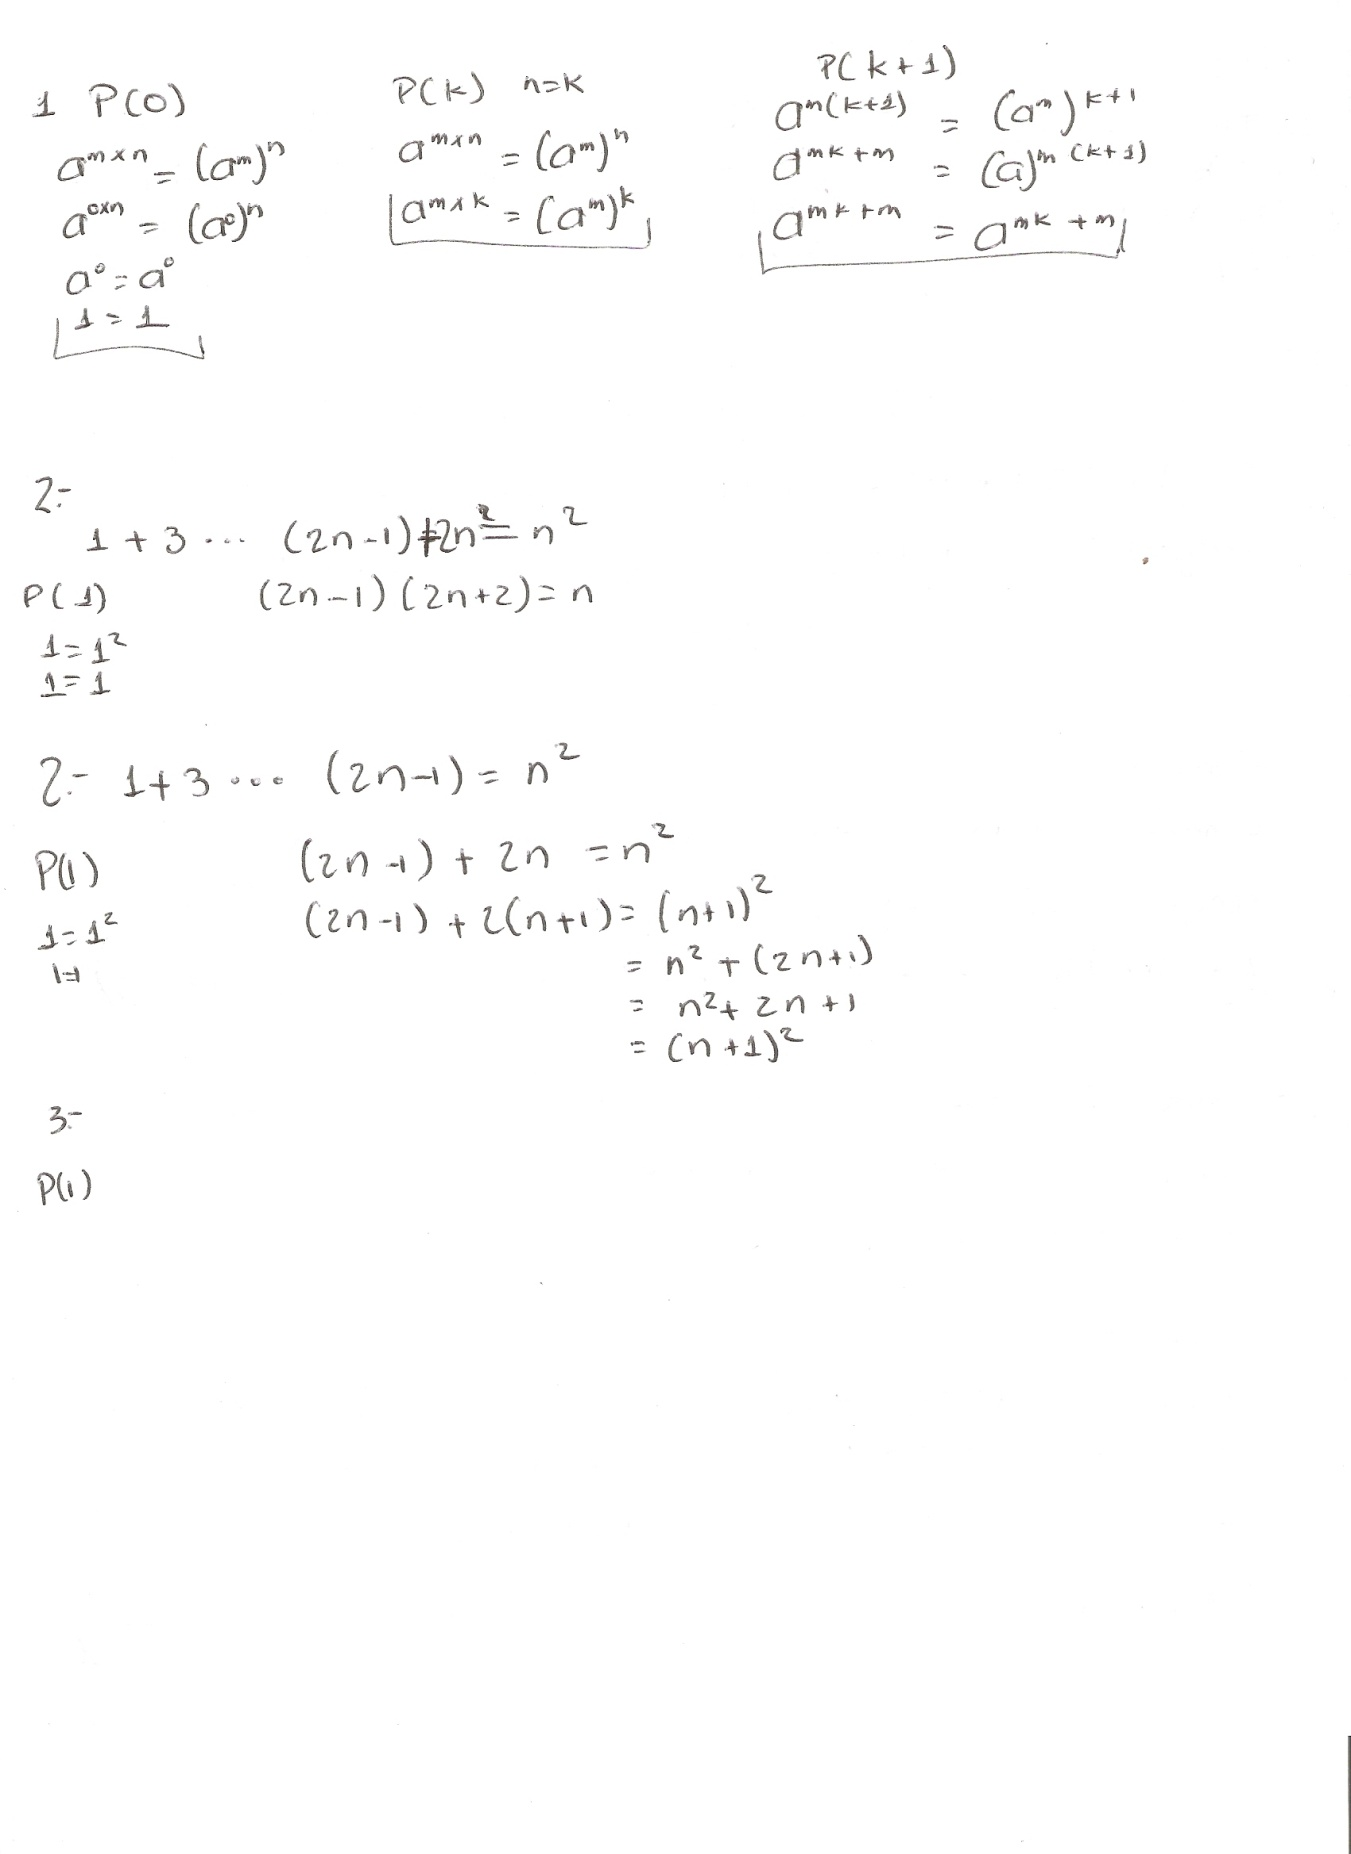 1 P(0)
a^{m×n} = (a^m)^n
a^{0×n} = (a^0)^n
a^0 = a^0
1 = 1
P(k) n=k
a^{m×n} = (a^m)^n
a^{m×k} = (a^m)^k
P(k+1)
a^{m(k+1)} = (a^m)^{k+1}
a^{mk+m} = (a)^{m(k+1)}
a^{mk+m} = a^{mk+m}
2-
1 + 3 ... (2n-1)+2n = n^2
P(1) (2n-1)(2n+2) = n
1 = 1^2
1 = 1
2- 1+3 ... (2n-1) = n^2
P(1) (2n-1) + 2n = n^2
1 = 1^2 (2n-1) + 2(n+1) = (n+1)^2
1=1 = n^2 + (2n+1)
= n^2 + 2n + 1
= (n+1)^2
3-
P(1)